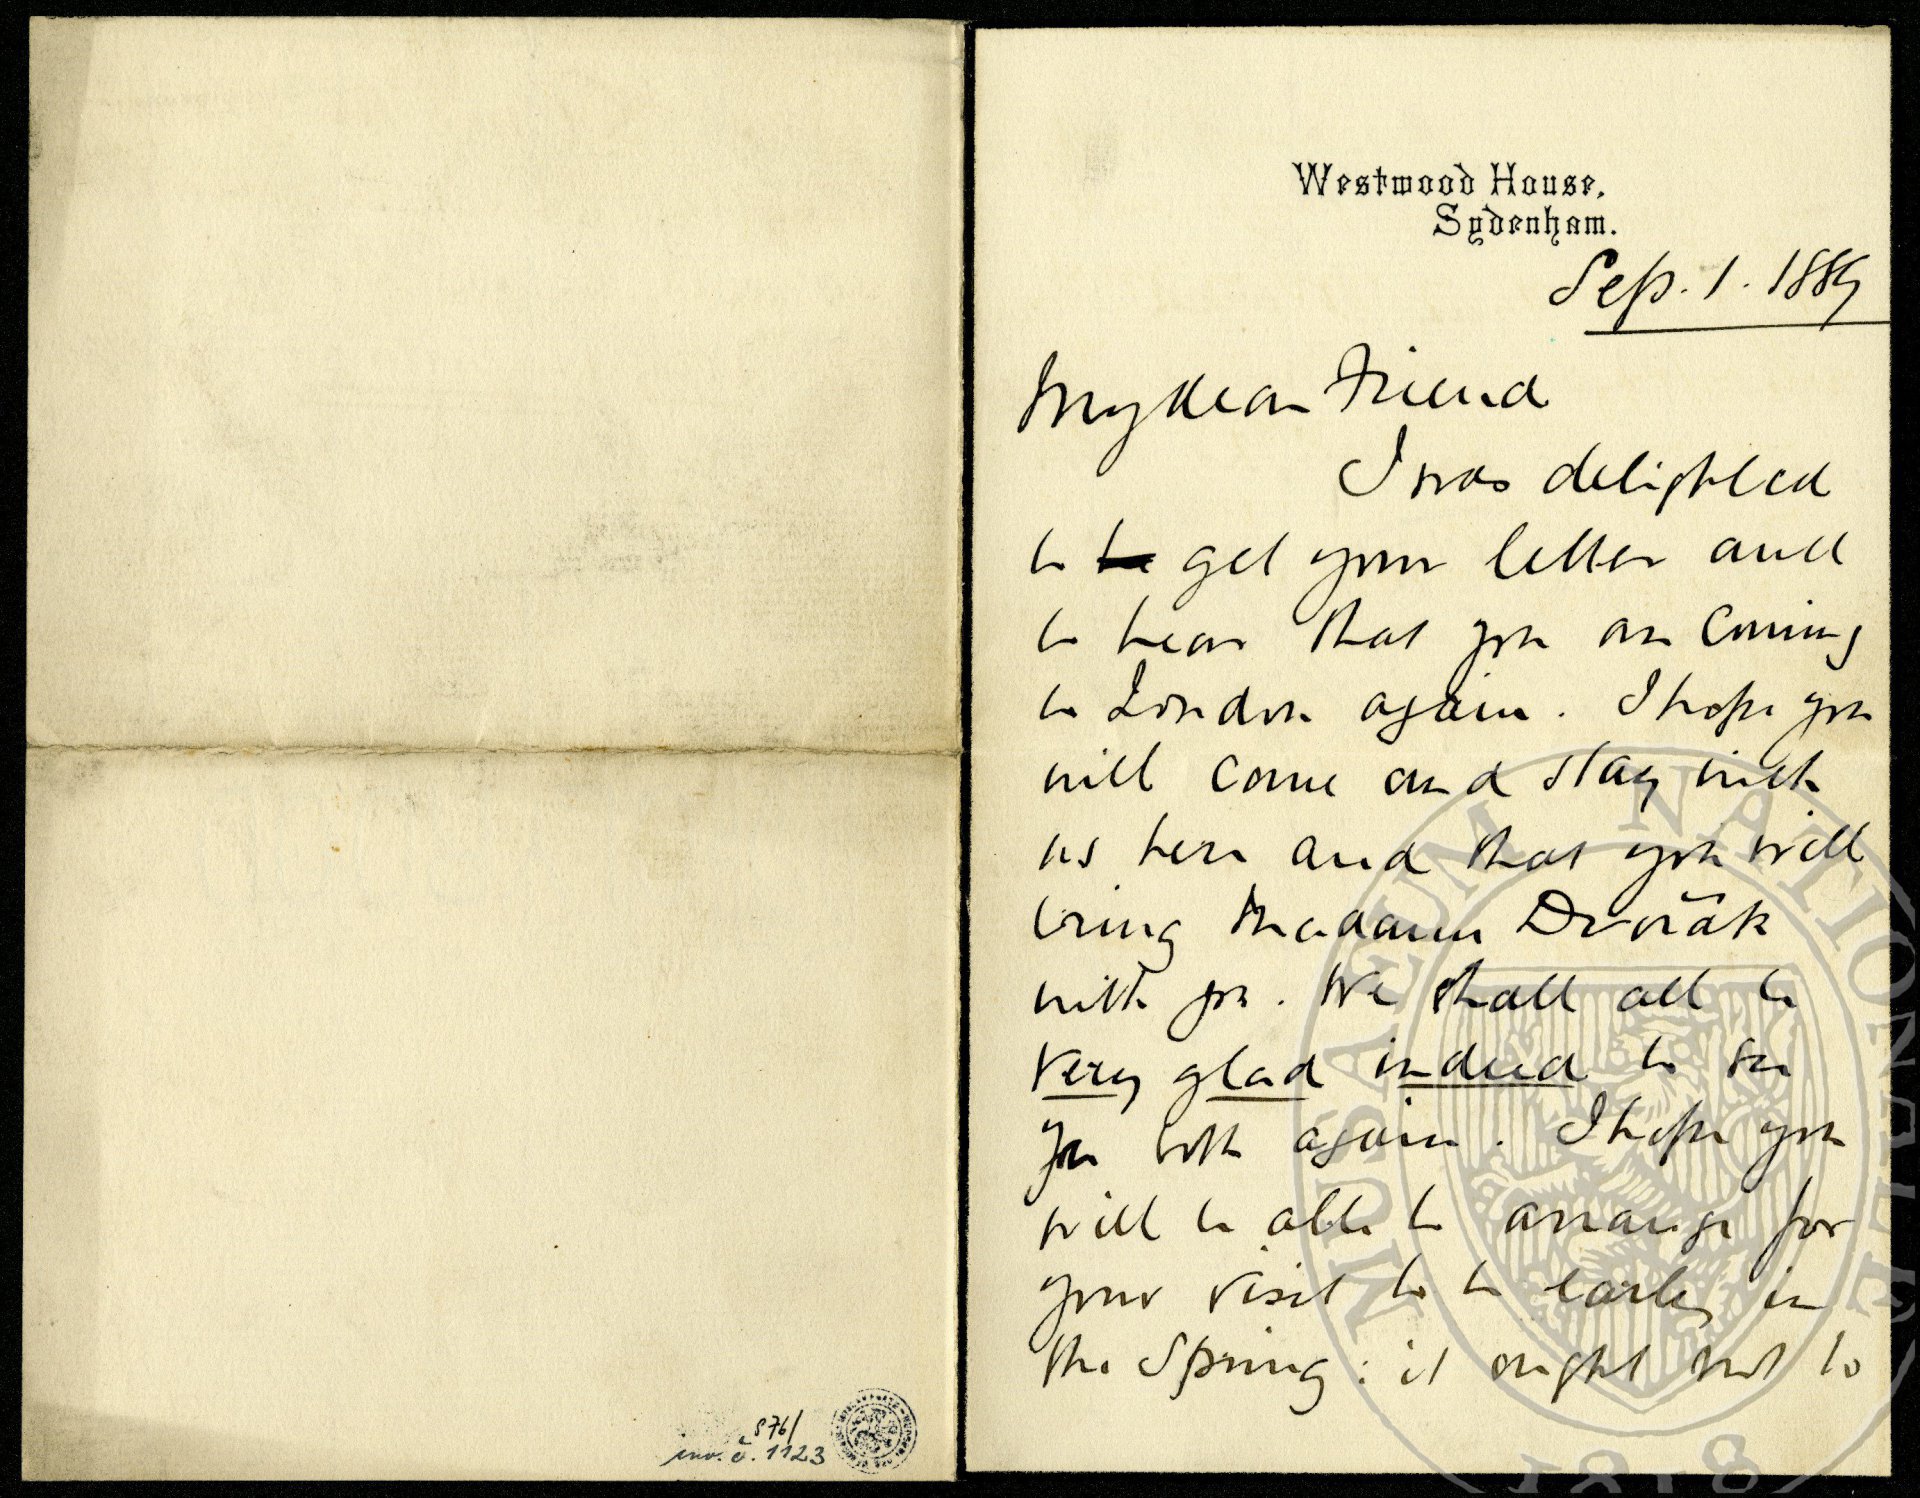 Westwood House,
Sydenham.
Sep. 1. 1889
My dear Friend
I was delighted
to be get your letter and
to hear that you are coming
to London again. I hope you
will come and stay with
us here and that you will
bring Madame Dvořák
with you. We shall all be
very glad indeed to see
you both again. I hope you
will be able to arrange for
your visit to be early in
the Spring: it ought not to
876/
inv. č. 1123
MUSAEUM NATIONALE
1818